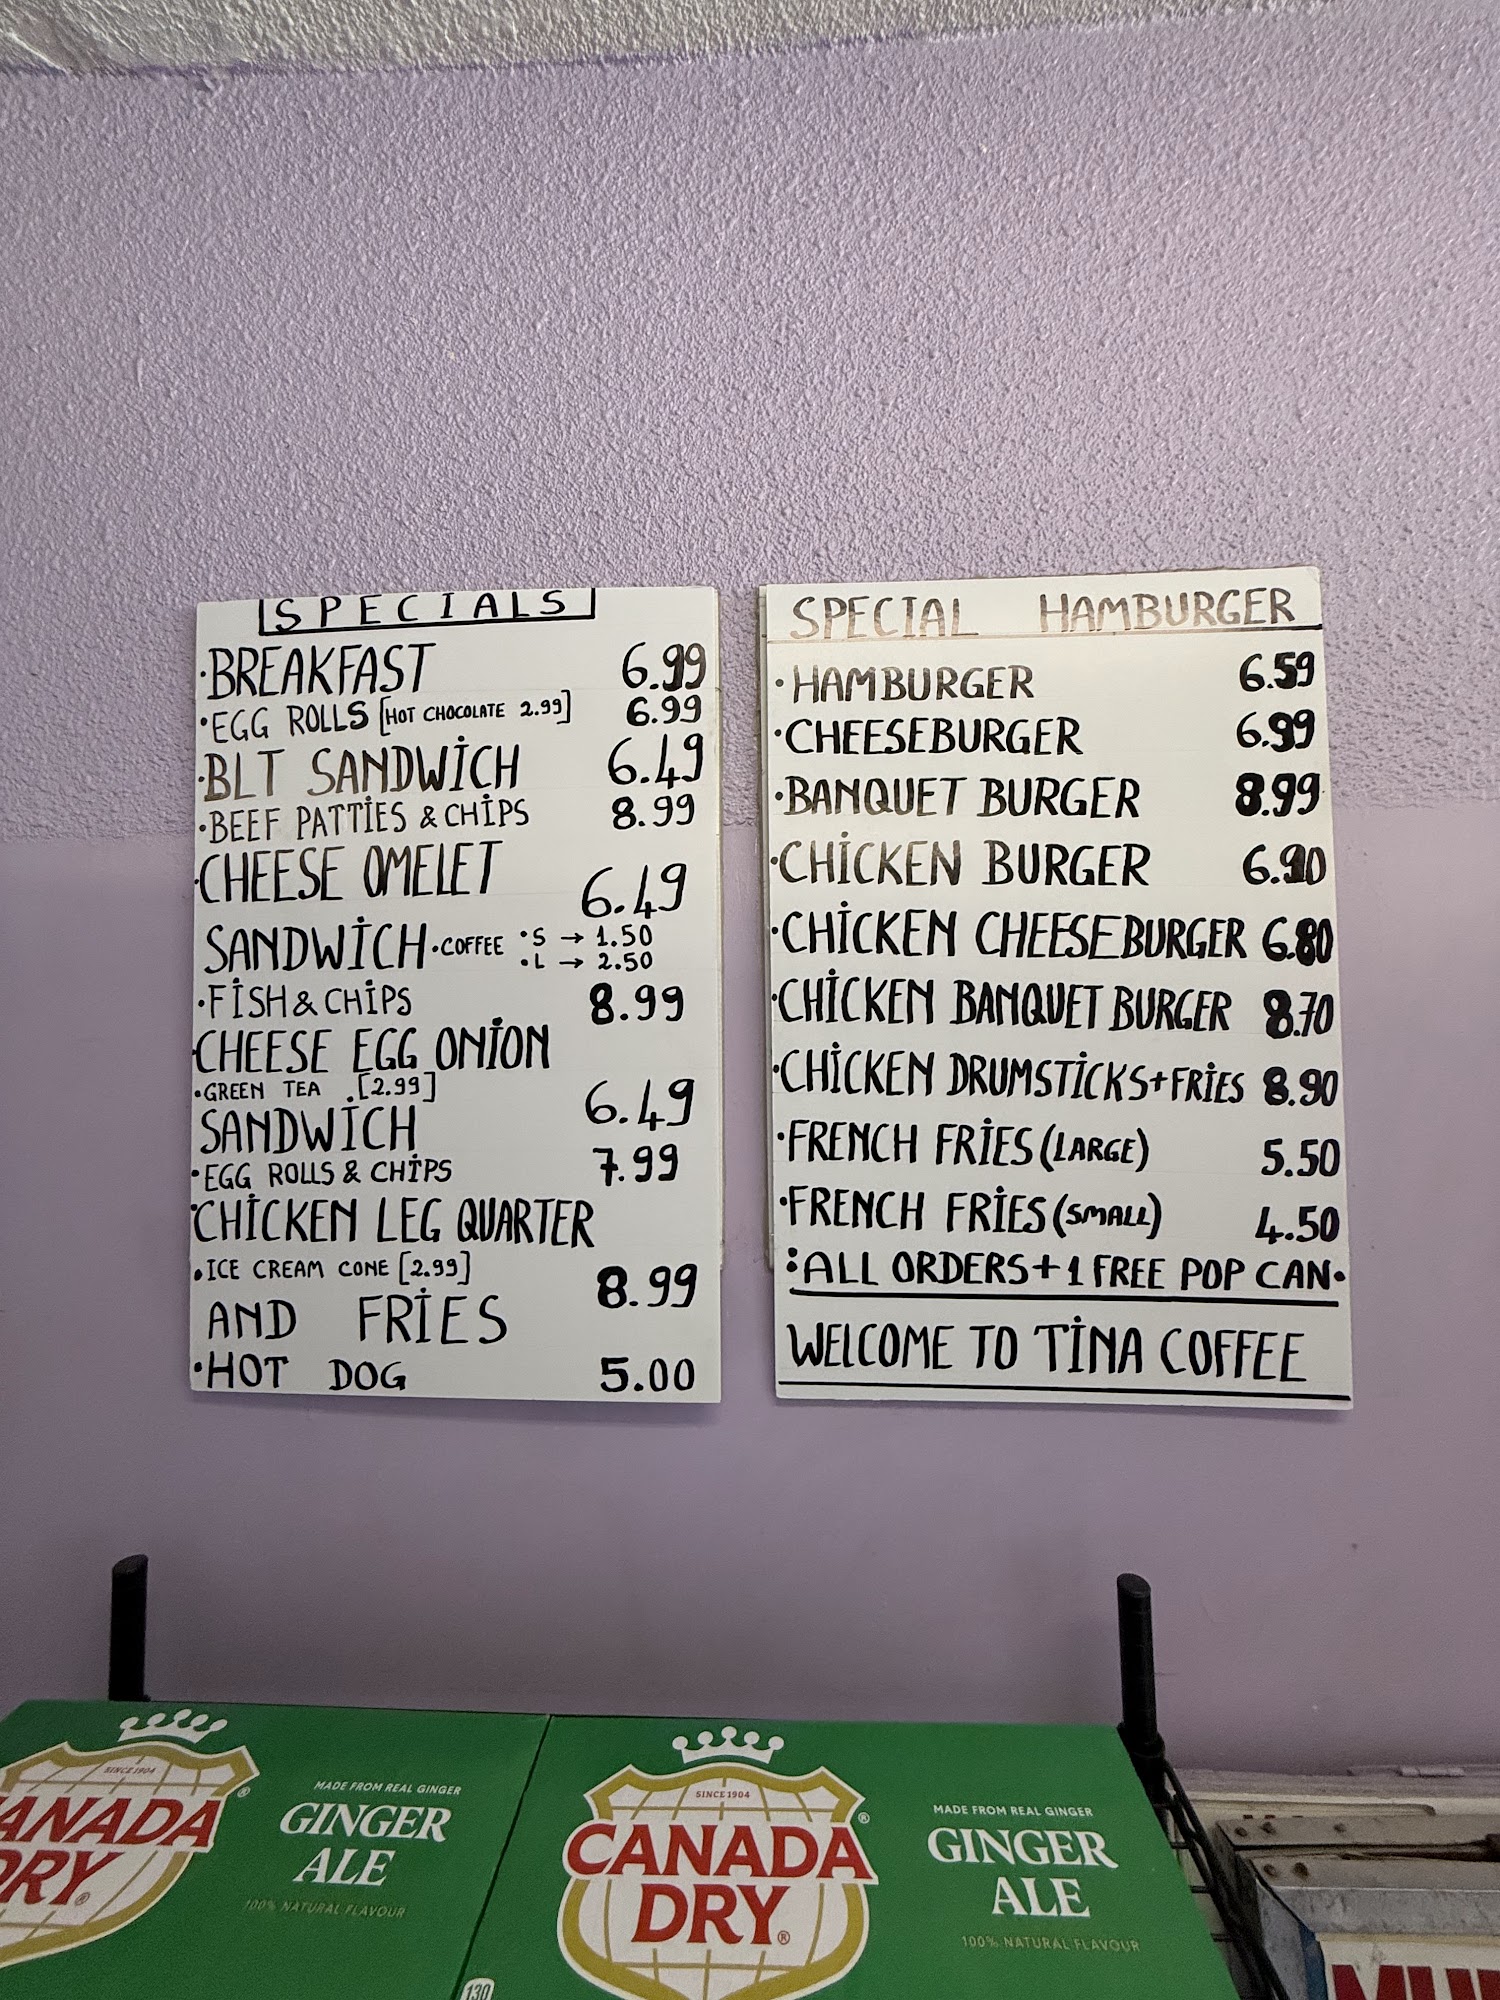 SPECIALS
•BREAKFAST 6.99
•EGG ROLLS [HOT CHOCOLATE 2.99] 6.99
•BLT SANDWİCH 6.49
•BEEF PATTİES & CHİPS 8.99
•CHEESE OMELET
6.49
SANDWİCH •COFFEE •S → 1.50
•L → 2.50
•FİSH & CHİPS 8.99
•CHEESE EGG ONİON
•GREEN TEA .[2.99]
SANDWİCH 6.49
•EGG ROLLS & CHİPS 7.99
•CHİCKEN LEG QUARTER
•ICE CREAM CONE [2.99]
8.99
AND FRİES
•HOT DOG 5.00
SPECIAL HAMBURGER
•HAMBURGER 6.59
•CHEESEBURGER 6.99
•BANQUET BURGER 8.99
•CHİCKEN BURGER 6.90
•CHİCKEN CHEESEBURGER 6.80
•CHİCKEN BANQUET BURGER 8.70
•CHİCKEN DRUMSTİCKS+FRİES 8.90
•FRENCH FRİES (LARGE) 5.50
•FRENCH FRİES (SMALL) 4.50
:ALL ORDERS+1 FREE POP CAN•
WELCOME TO TİNA COFFEE
SINCE 1904
CANADA
DRY®
MADE FROM REAL GINGER
GINGER
ALE
100% NATURAL FLAVOUR
SINCE 1904
CANADA
DRY®
MADE FROM REAL GINGER
GINGER
ALE
100% NATURAL FLAVOUR
130